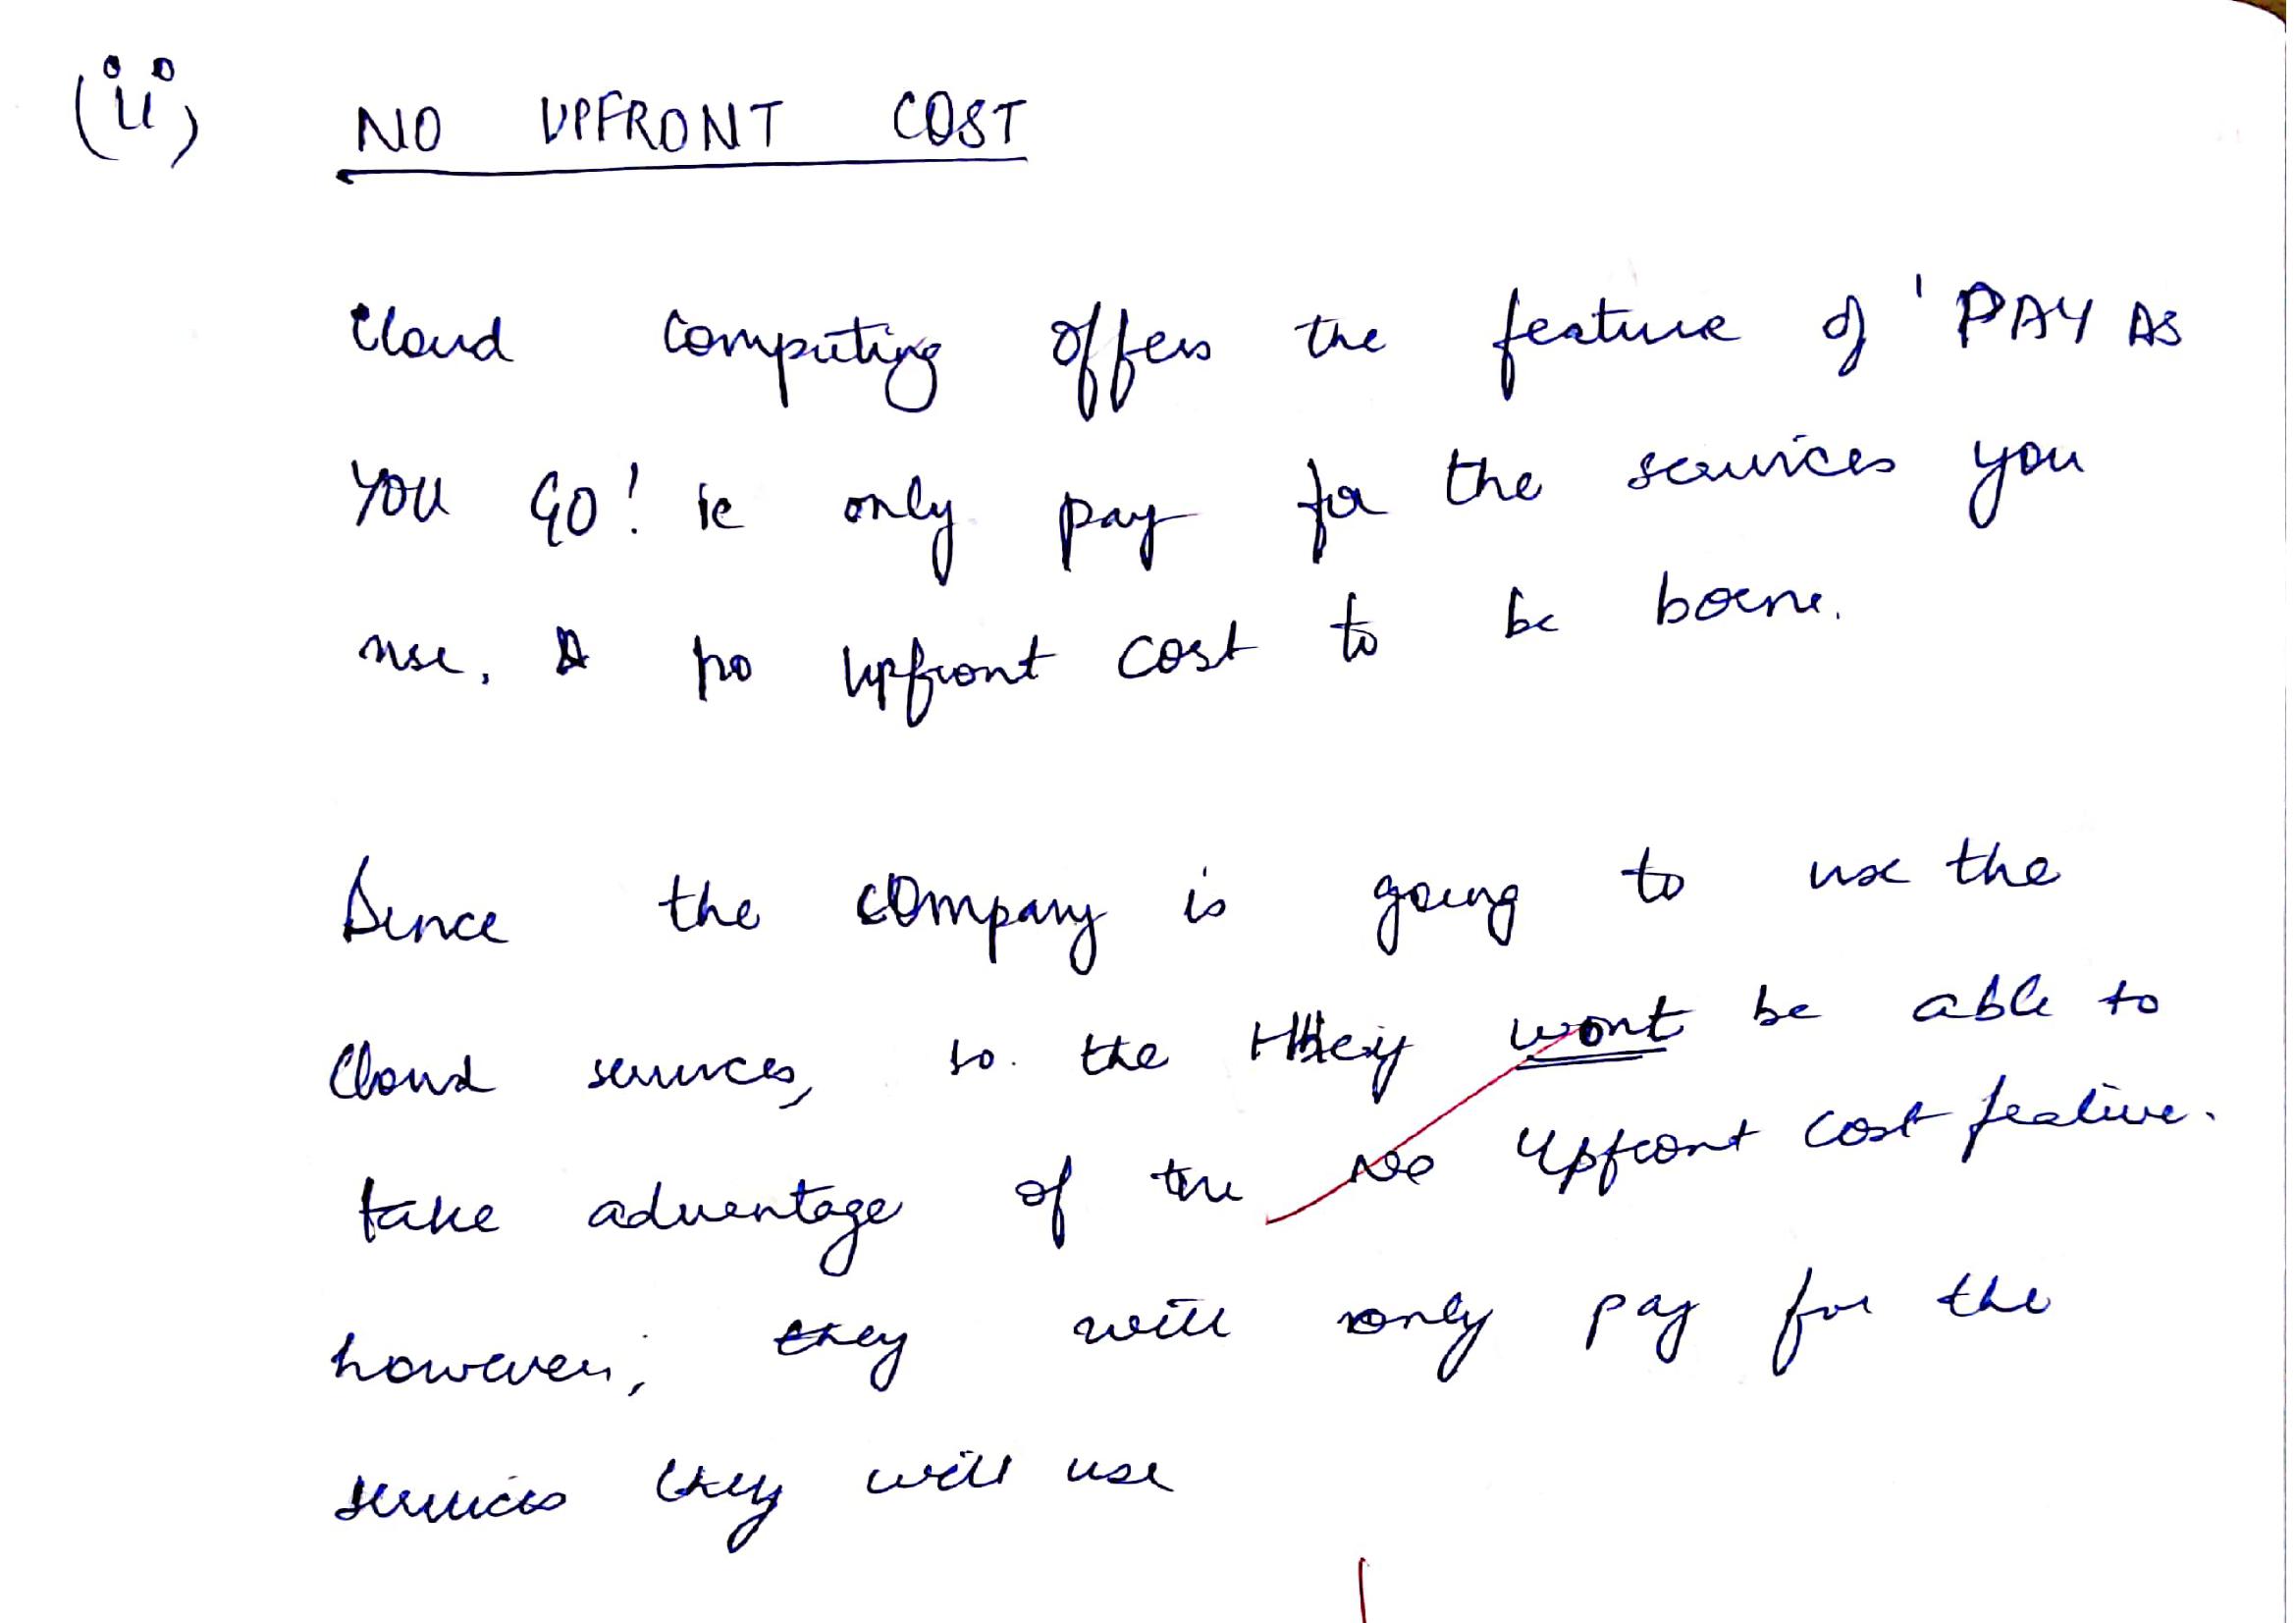 (ii) NO UPFRONT COST
Cloud Computing offers the feature of 'PAY AS
YOU GO! ie only pay for the services you
use. no upfront cost to be borne.
Since the company is going to use the
Cloud services, so the they wont be able to
take advantage of the no upfront cost feature.
however, they will only pay for the
services they will use